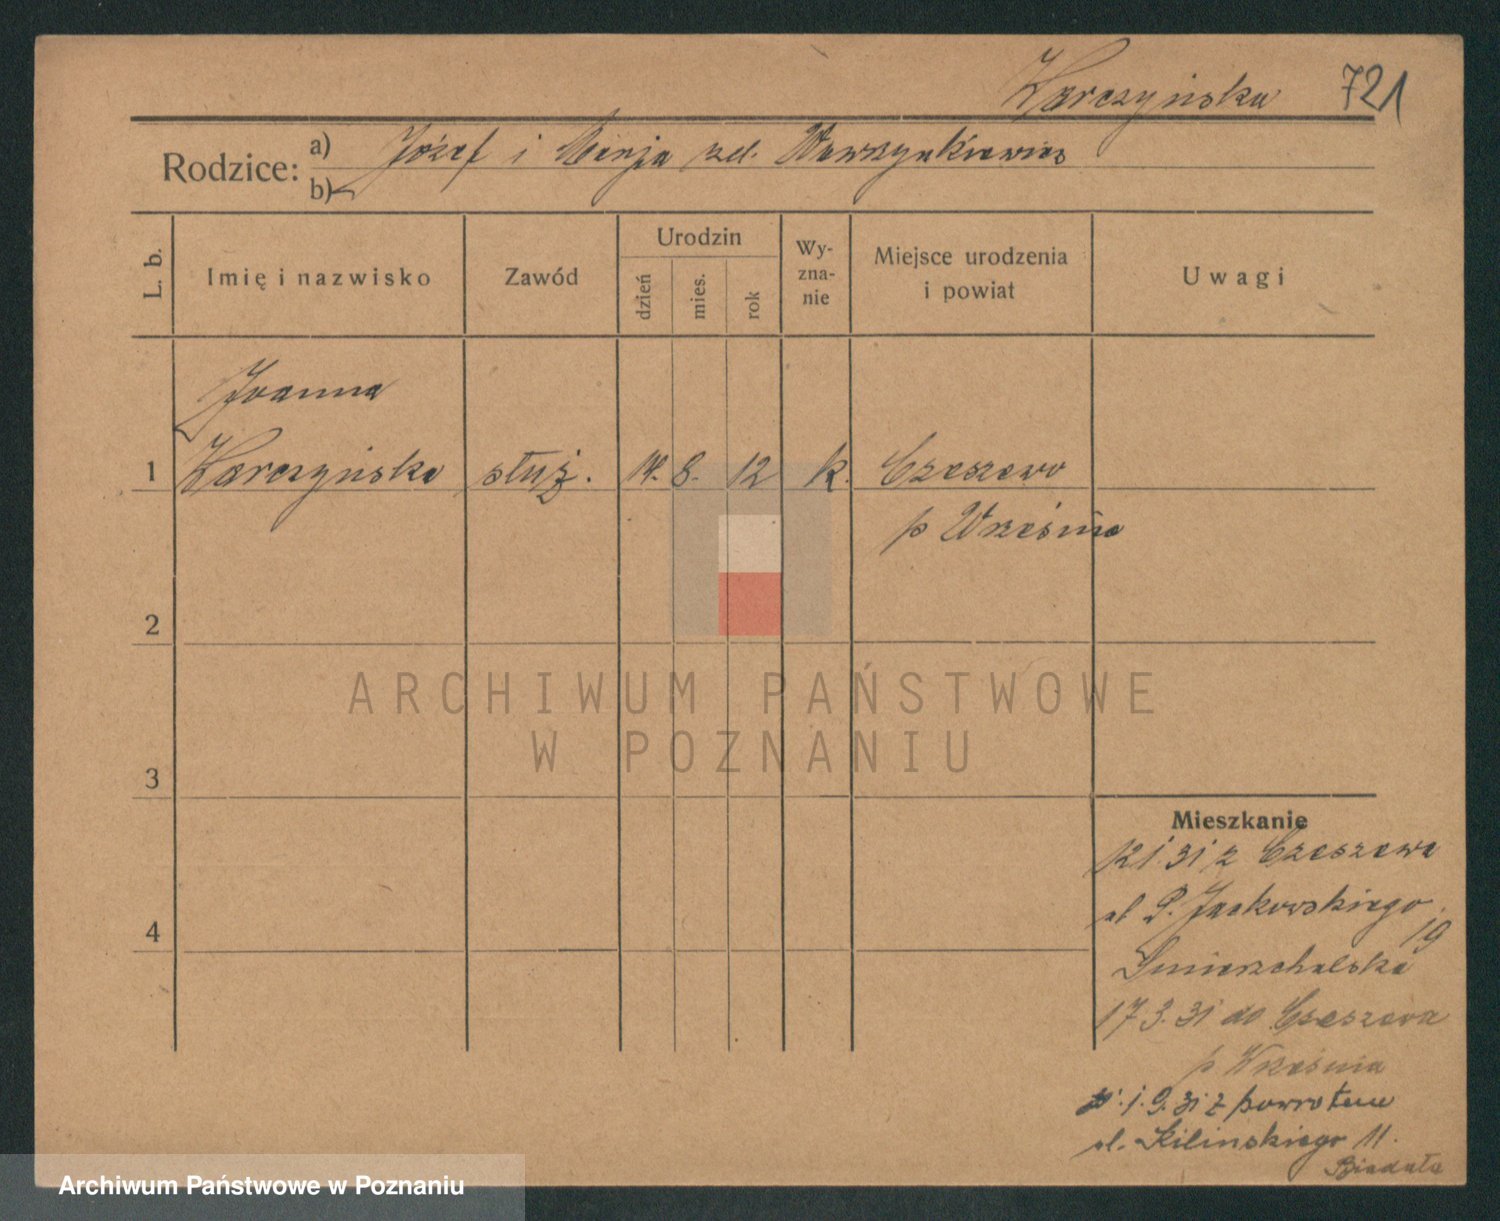 Karczyńska 721
Rodzice: a) Józef i Marja zd. Wawrzynkiewicz
b)
L. b.
Imię i nazwisko
Zawód
Urodzin
dzień
mies.
rok
Wy-
zna-
nie
Miejsce urodzenia
i powiat
Uwagi
Joanna
1 Karczyńska służ. 14. 8. 12 k. Czeszewo
p Września
2
ARCHIWUM PAŃSTWOWE
W POZNANIU
3
Mieszkanie
12 1. 31 z Czeszewa
ul P. Jackowskiego
19
4
17 3. 31 do Czeszewa
p Września
1. 9. 31 z powrotem
ul. Kilińskiego 11.
Biadała
Archiwum Państwowe w Poznaniu